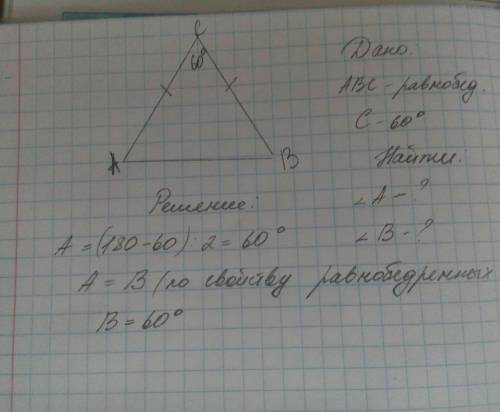 C
60°
A
B
Дано:
ABC - равнобед.
C - 60°
Найти:
∠A - ?
∠B - ?
Решение:
A = (180-60) : 2 = 60°
A = B (по свойству равнобедренных
B = 60°